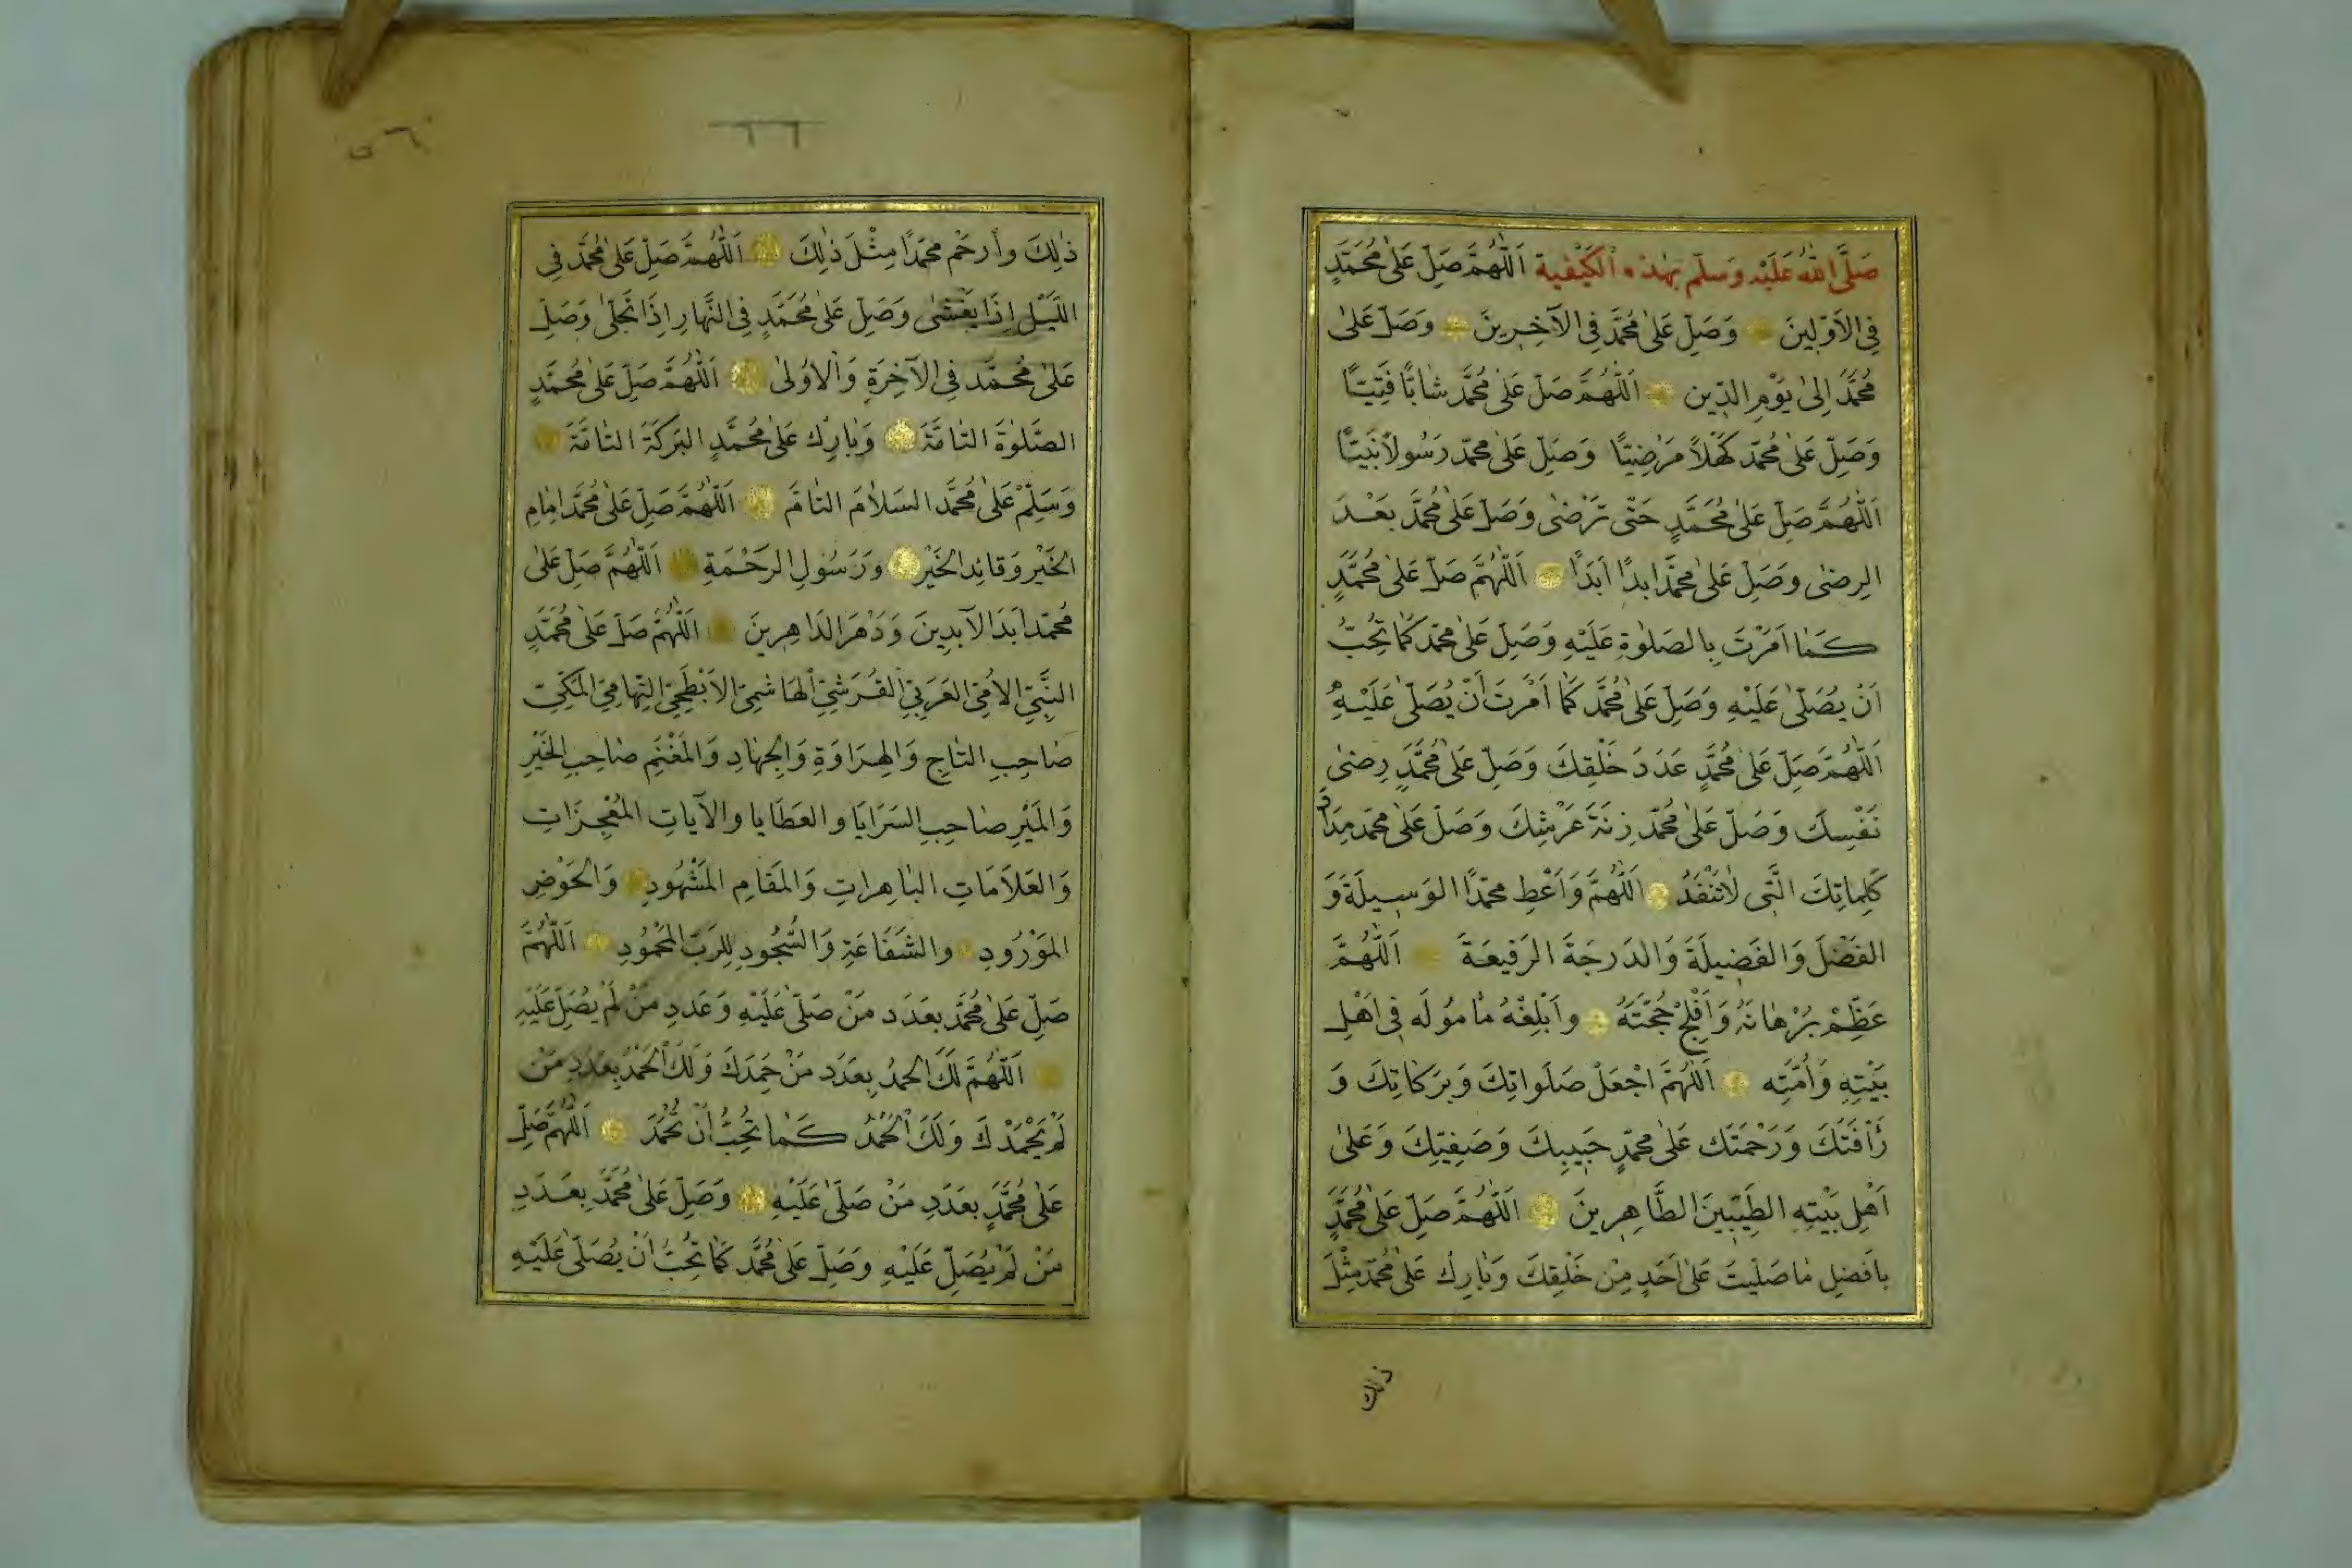 صَلَّى اللّٰهُ عَلَيْهِ وَسَلَّم بِهٰذِهِ الكَيْفِية اَللّٰهُمَّ صَلِّ عَلىٰ مُحَمَّدٍ
فِى الاَوَّلِينَ وَصَلِّ عَلىٰ مُحَمَّد فِى الآخِرِينَ وَصَلِّ عَلىٰ
مُحَمَّد اِلىٰ يَوْمِ الدِّين اَللّٰهُمَّ صَلِّ عَلىٰ مُحَمَّد شٰابًّا فَتِيًّا
وَصَلِّ عَلىٰ مُحَمَّد كَهْلاً مَرْضِيًّا وَصَلِّ عَلىٰ محمّد رَسُولاً نَبِيًّا
اَللّٰهُمَّ صَلِّ عَلىٰ مُحَمَّدٍ حَتّٰى تَرْضٰى وَصَلِّ عَلىٰ مُحَمَّد بَعْدَ
الرِضىٰ وَصَلِّ عَلىٰ محمَّد اَبدًا اَبَدًا اَللّٰهُمَّ صَلِّ عَلىٰ مُحَمَّدٍ
كَمٰا اَمَرْتَ بِالصَلوٰةِ عَلَيْهِ وَصَلِّ عَلىٰ محمّد كَمٰا تُحِبُّ
اَنْ يُصَلّىٰ عَلَيْهِ وَصَلِّ عَلىٰ مُحَمَّد كَمٰا اَمَرتَ اَنْ يُصَلّىٰ عَلَيْهِ
اَللّٰهُمَّ صَلِّ عَلىٰ مُحَمَّدٍ عَدَدَ خَلْقِكَ وَصَلِّ عَلىٰ مُحَمَّدٍ رِضىٰ
نَفْسِكَ وَصَلِّ عَلىٰ مُحَمّد زِنَةَ عَرْشِكَ وَصَلِّ عَلىٰ محمّد مِدَادَ
كَلِمٰاتِكَ الَّتِى لاٰ تَنْفَدُ اَللّٰهُمَّ وَاَعْطِ محمّدًا الوَسِيلَةَ وَ
الفَضْلَ وَالفَضِيلَةَ وَالدَرجَةَ الرَفيعَةَ اَللّٰهُمَّ
عَظِّمْ بُرْهٰانَهُ وَاَفْلِجْ حُجَّتَهُ وَاَبْلِغْهُ مٰامُولَه فِى اَهْلِ
بَيْتِهِ وَاُمَّتِه اَللّٰهُمَّ اجْعَلْ صَلَواتِكَ وَبَرَكَاتِكَ وَ
رَأفَتَكَ وَرَحْمَتَك عَلىٰ محمّدٍ حَبِيبِكَ وَصَفِيّكَ وَعَلىٰ
اَهْلِ بَيْتِهِ الطَيّبِينَ الطَّاهِرِينَ اَللّٰهُمَّ صَلِّ عَلىٰ مُحَمَّدٍ
بِاَفضلِ مٰا صَلّيتَ عَلىٰ اَحَدٍ مِنْ خَلْقِكَ وَبٰارِكْ عَلىٰ مُحَمّد مِثْلَ
ذلك
٦٦
ذٰلِكَ وارحَمْ محمّدًا مِثْلَ ذٰلِكَ اَللّٰهُمَّ صَلِّ عَلىٰ مُحَمَّد فِى
اللَيْلِ اِذَا يَغْشٰى وَصَلِّ عَلىٰ مُحَمَّدٍ فِى النَّهارِ اِذَا تَجَلىّٰ وَصَلِّ
عَلىٰ مُحَمَّد فِى الآخِرَةِ وَالاُولىٰ اَللّٰهُمَّ صَلِّ عَلىٰ مُحَمَّدٍ
الصَّلوٰةَ التٰامَّةَ وَبٰارِك عَلىٰ مُحَمَّدٍ البَرَكَةَ التٰامَّةَ
وَسَلِّمْ عَلىٰ مُحَمَّد السَلاٰمَ التٰامَّ اَللّٰهُمَّ صَلِّ عَلىٰ مُحَمَّد اِمٰامِ
الخَيْرِ وَقائِد الخَيْرِ وَرَسُولِ الرَحْمَةِ اَللّٰهُمَّ صَلِّ عَلىٰ
مُحَمّد اَبَدَ الآبِدِينَ وَدَهْرَ الدَاهِرِينَ اَللّٰهُمَّ صَلِّ عَلىٰ مُحَمَّدٍ
النَّبِيِّ الاُمِّىِّ العَرَبِىِّ القُرَشِىِّ الهَاشِمِىِّ الاَبْطَحِىِّ التِهَامِىِّ المَكِّىِّ
صٰاحِبِ التٰاجِ وَالهِرَاوَةِ وَالجِهٰادِ وَالمَغْنَمِ صٰاحِبِ الخَيْرِ
وَالمَيْرِ صٰاحِبِ السَرَايَا والعَطَايا والآيَاتِ المُعْجِزَاتِ
وَالعَلاَمَاتِ البٰاهِراتِ وَالمَقَامِ المَشْهُودِ وَالحَوْضِ
المَوْرُودِ والشَفَاعَةِ وَالسُّجُودِ لِلرَبِّ المَحْمُودِ اَللّٰهُمَّ
صَلِّ عَلىٰ مُحَمَّد بعَدَد مَنْ صَلّىٰ عَلَيْهِ وَعَدَدِ مَنْ لَمْ يُصَلِّ عَلَيْهِ
اَللّٰهُمَّ لَكَ الحَمدُ بِعَدَد مَنْ حَمِدَكَ وَلَكَ الحَمْدُ بِعَدَدِ مَنْ
لَمْ يَحْمَدْكَ وَلَكَ الحَمْدُ كَمٰا تُحِبُّ اَنْ تُحْمَدَ اَللّٰهُمَّ صَلِّ
عَلىٰ مُحَمَّدٍ بعَدَدِ مَنْ صَلّىٰ عَلَيْهِ وَصَلِّ عَلىٰ مُحَمَّد بِعَدَدِ
مَنْ لَمْ يُصَلِّ عَلَيْهِ وَصَلِّ عَلىٰ مُحَمَّد كَمٰا تُحِبُّ اَنْ يُصَلّىٰ عَلَيْهِ